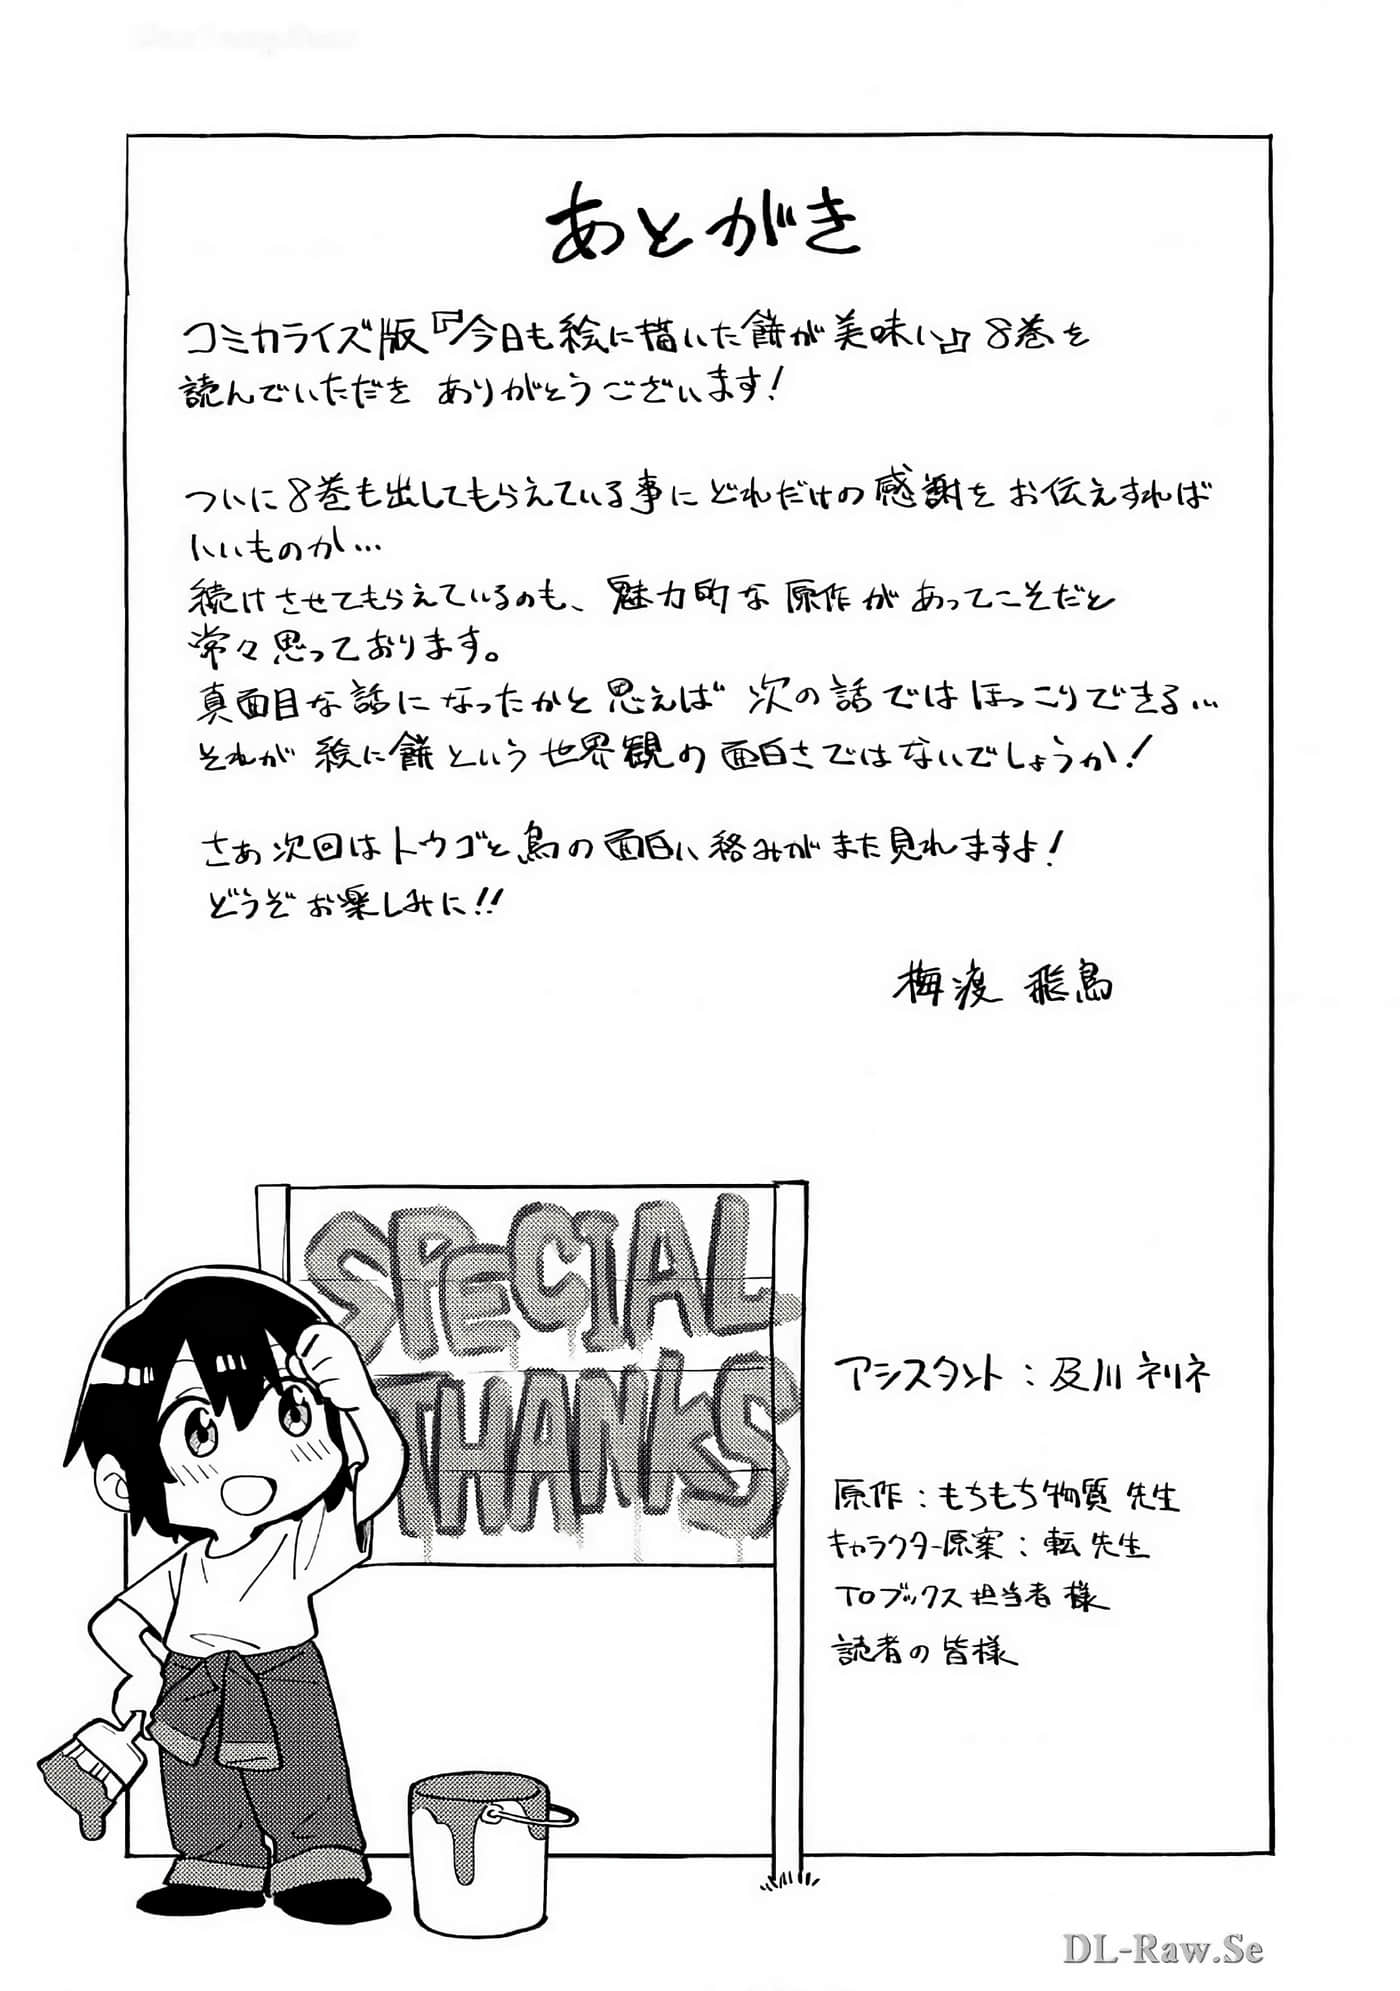 あとがき
コミカライズ版『今日も絵に描いた餅が美味い』8巻を
読んでいただき ありがとうございます!
ついに8巻も出してもらえている事にどれだけの感謝をお伝えすれば
いいものか…
続けさせてもらえているのも、魅力的な原作があってこそだと
常々思っております。
真面目な話になったかと思えば 次の話ではほっこりできる…
それが 絵に餅という世界観の面白さではないでしょうか!
さあ次回はトウゴと鳥の面白い絡みがまた見れますよ!
どうぞお楽しみに!!
梅渡 飛鳥
SPECIAL
THANKS
アシスタント:及川ネリネ
原作:もちもち物質 先生
キャラクター原案:転 先生
TOブックス担当者 様
読者の皆様
DL-Raw.Se